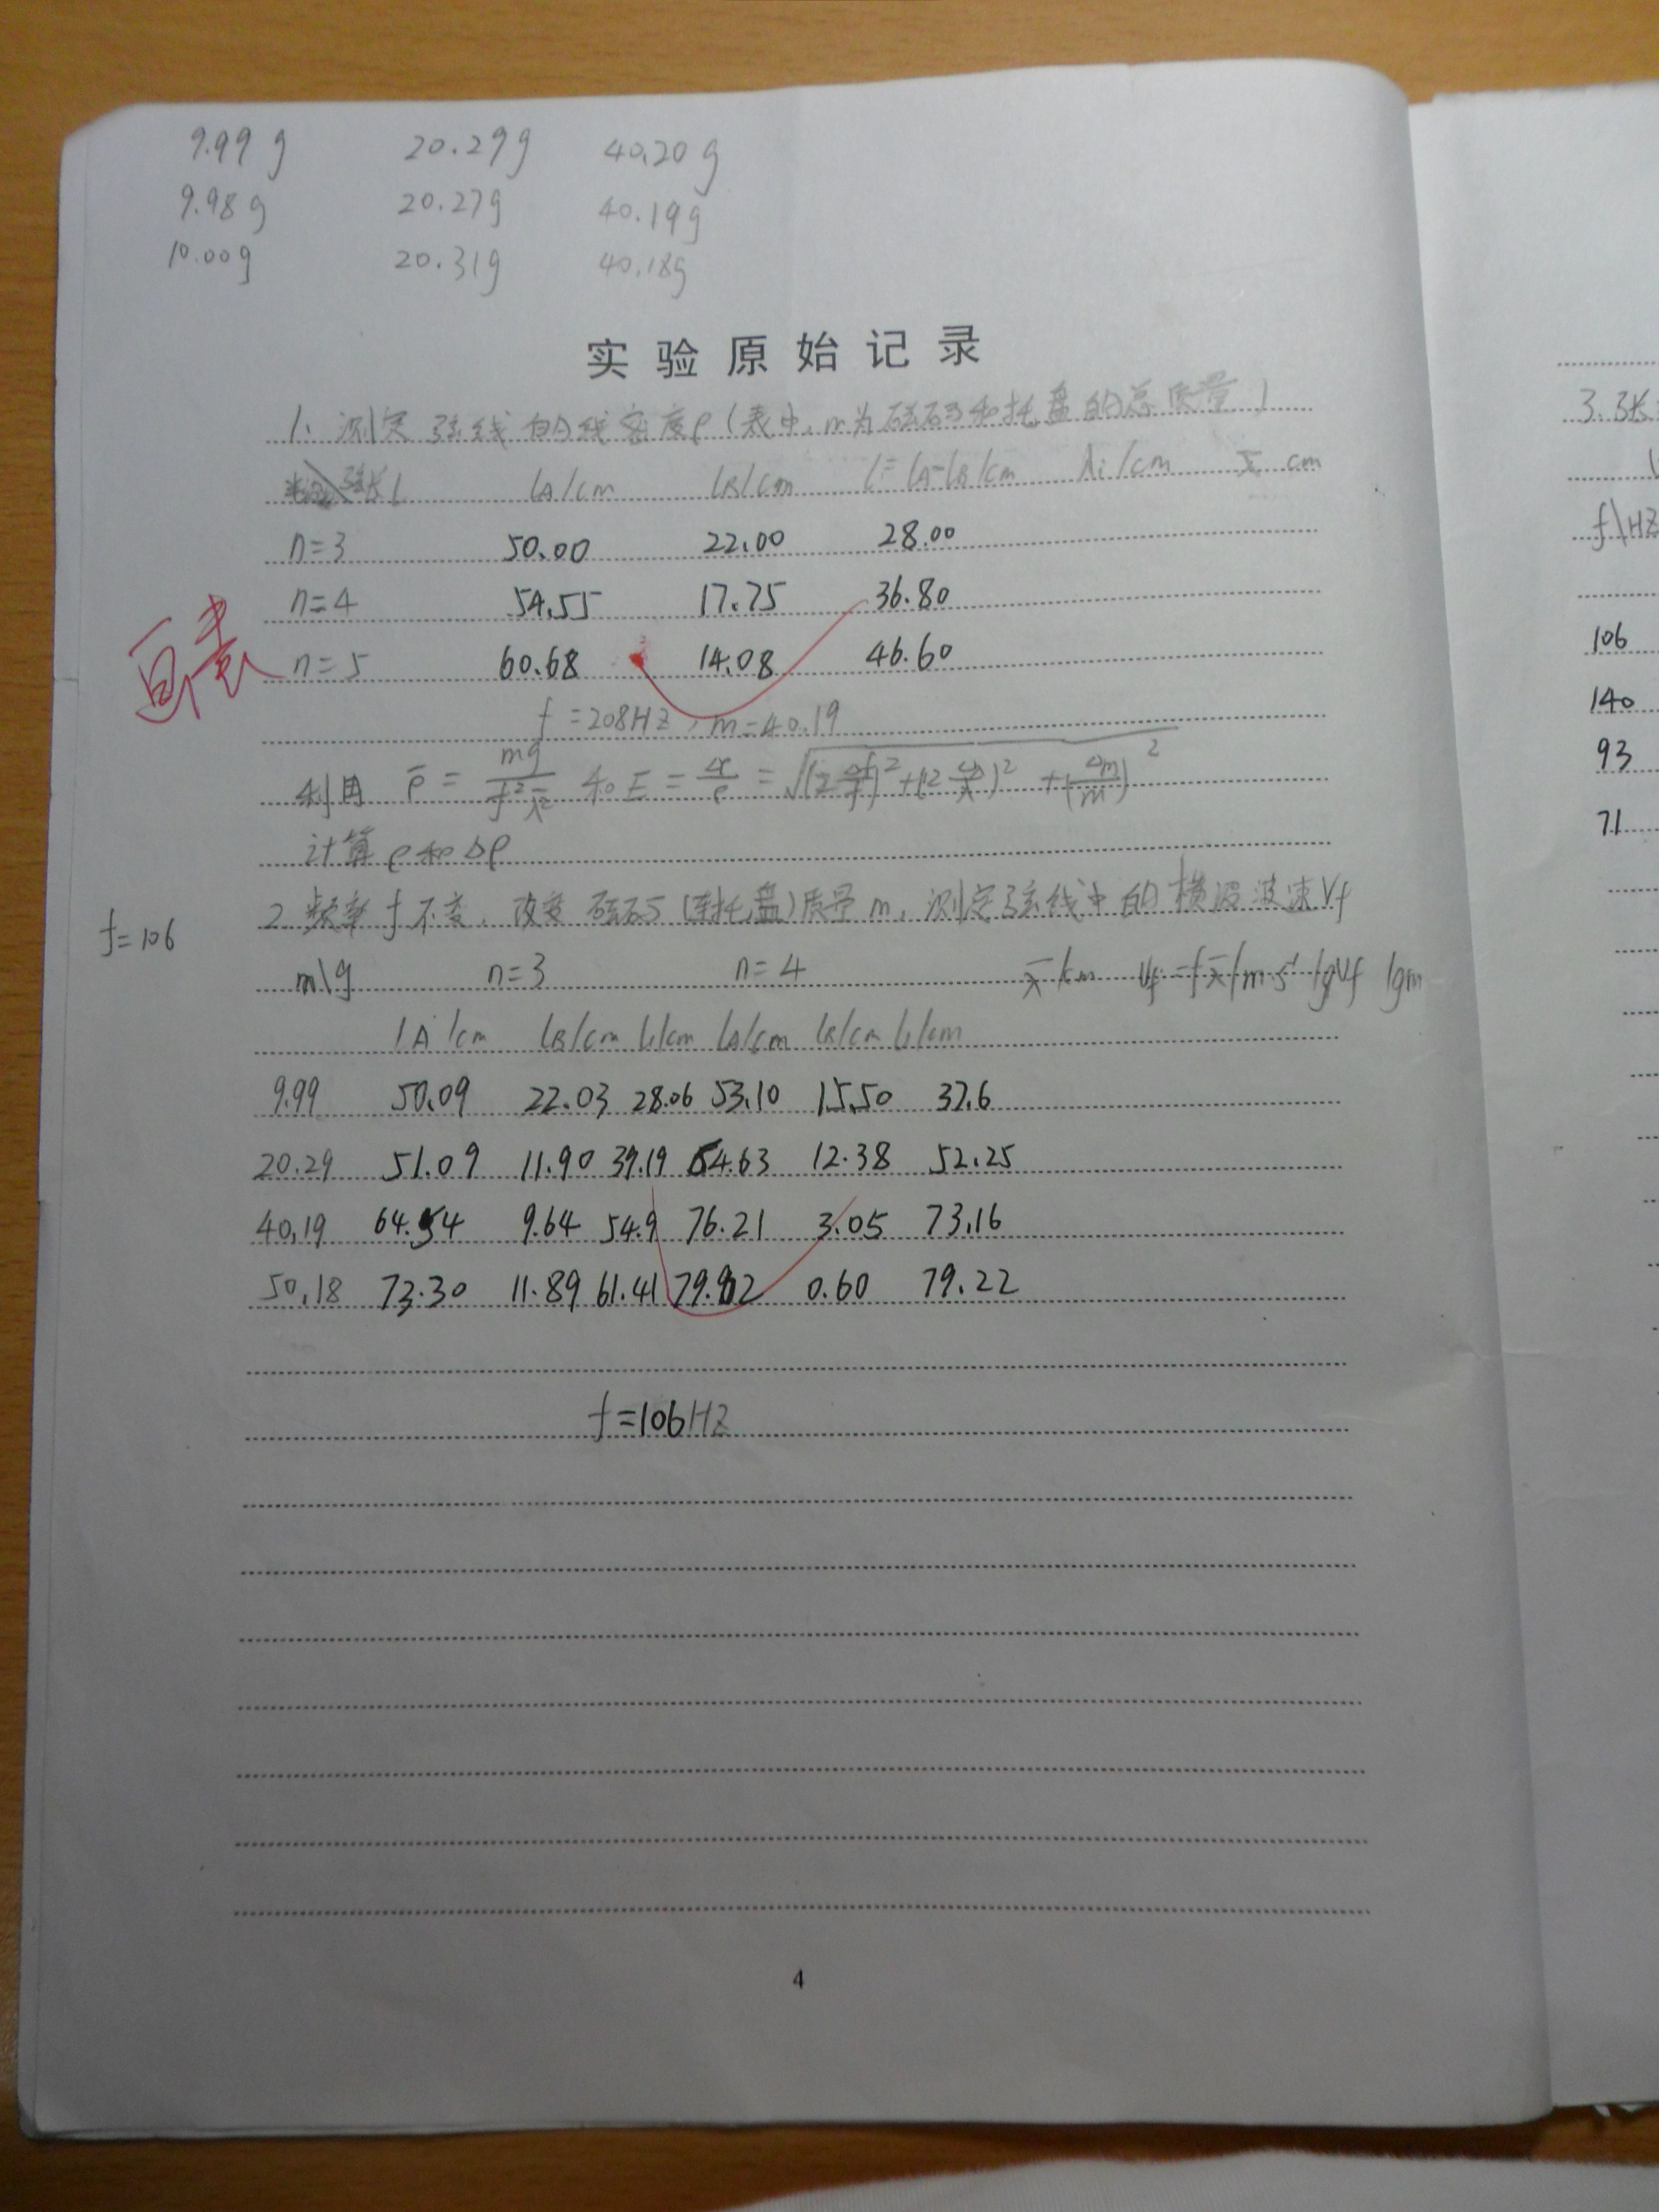 9.99 g 20.29g 40.20 g
9.98 g 20.27g 40.19g
10.00g 20.31g 40.18g
实验原始记录
1、测定弦线的线密度ρ(表中,m为砝码和托盘的总质量)
弦长l lA/cm lB/cm l=lA-lB/cm λi/cm λ̄ cm
n=3 50.00 22.00 28.00
n=4 54.55 17.75 36.80
n=5 60.68 14.08 46.60
画表
f=208HZ, m=40.19
利用 ρ̄ = mg/f²λ̄² 和 E = Δρ/ρ = √(2Δf/f)²+(2Δλ/λ)²+(Δm/m)²
计算ρ和Δρ
2.频率f不变,改变砝码(连托盘)质量m,测定弦线中的横波波速Vf
f=106
m\g n=3 n=4 λ̄/cm Vf=fλ̄/m·s⁻¹ lgVf lgm
lA/cm lB/cm l/cm lA/cm lB/cm l/cm
9.99 50.09 22.03 28.06 53.10 15.50 37.6
20.29 51.09 11.90 39.19 64.63 12.38 52.25
40.19 64.54 9.64 54.9 76.21 3.05 73.16
50.18 73.30 11.89 61.41 79.82 0.60 79.22
f=106HZ
4
3.张
f\HZ
106
140
93
71